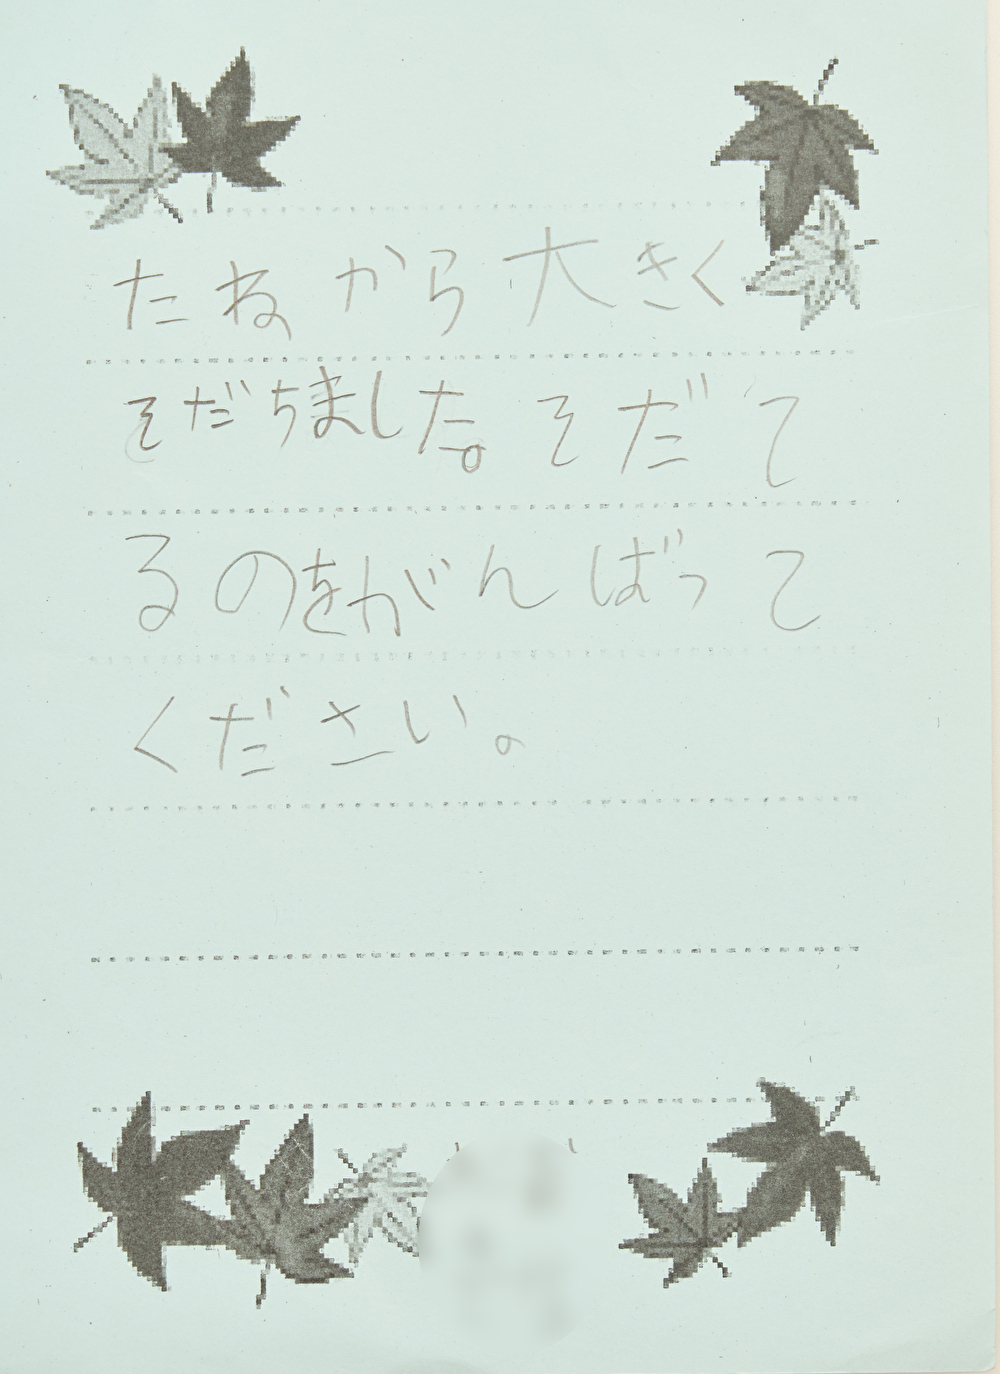 たねから大きく
そだちました。そだて
るのをがんばって
ください。